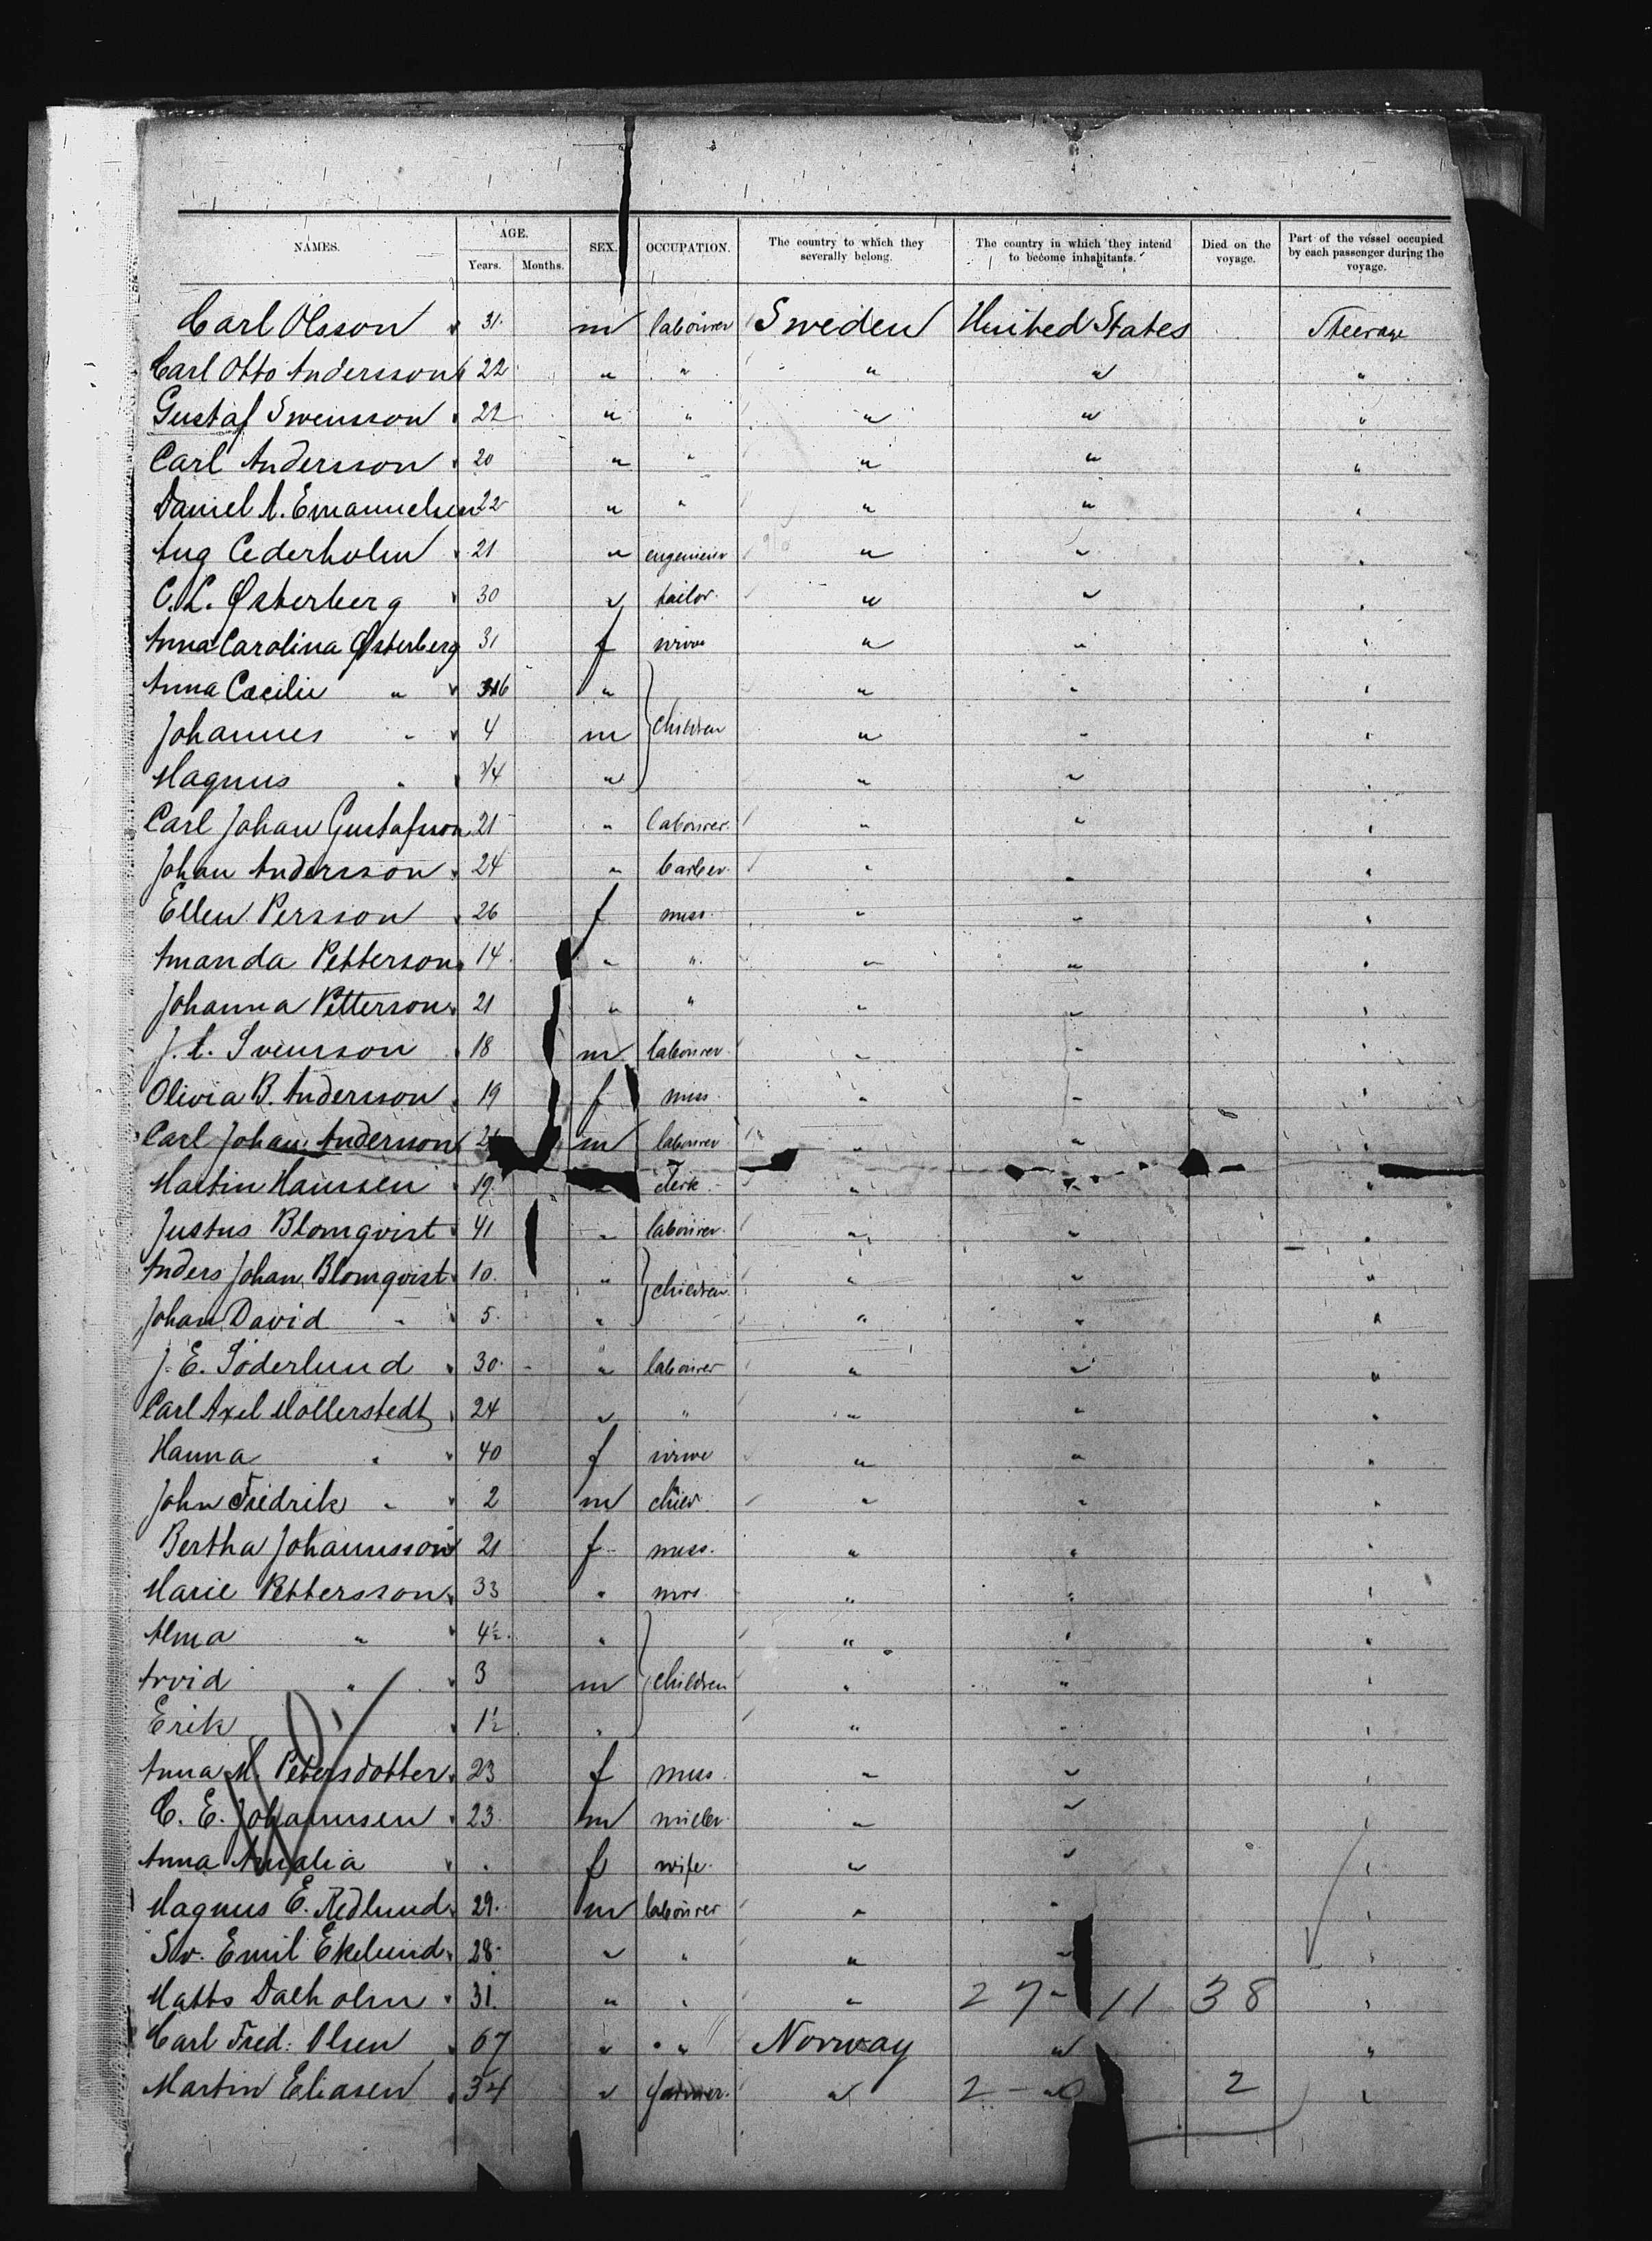 NAMES. AGE. SEX. OCCUPATION. The country to which they severally belong. The country in which they intend to become inhabitants. Died on the voyage. Part of the vessel occupied by each passenger during the voyage.
Years. Months.
Carl Olsson 31. m labourer Sweden United States Steerage
Carl Otto Andersson 22 " " " " "
Gustaf Swensson 22 " " " " "
Carl Andersson 20 " " " " "
Daniel A. Emanuelsen 22 " " " " "
Aug Cederholm 21 " engenieur " " "
C. L. Østerberg 30 " tailor " " "
Anna Carolina Østerberg 31 f " " "
Anna Cacilie " " " " "
Johannes " 4 m children " " "
Magnus " 3/4 " " " "
Carl Johan Gustafsson 21 " labourer " " "
Johan Andersson 24 " barber " " "
Ellen Persson 26 f miss " " "
Amanda Petterson 14 " " " " "
Johanna Petterson 21 " " " " "
J. A. Svensson 18 m labourer " " "
Olivia B. Andersson 19 f miss " " "
Carl Johan Andersson m labourer " " "
Martin Hanssen 19 " clerk " " "
Justus Blomqvist 41 " labourer " " "
Anders Johan Blomqvist 10. " children " " "
Johan David " 5. " " " "
J. E. Söderlund 30. " labourer " " "
Carl Axel Möllerstedt 24 " " " " "
Hanna " 40 f " " "
John Fredrik " 2 m " " "
Bertha Johannsson 21 f miss. " " "
Marie Pettersson 33 " mrs. " " "
Alma " 4½. " " " "
Arvid " 3 m children " " "
Erik 1½ " " " "
Anna M. Petersdotter 23 f miss " " "
C. E. Johannsen 23. m miller " " "
Anna Amalia " f wife. " " "
Magnus E. Redlund 29. m labourer " " "
Sv. Emil Ekelund 28. " " " " "
Matts Dalholm 31. " " " 27 - 11 38 "
Carl Fred: Olsen 67 " " Norway " "
Martin Eliasen 34 " farmer. " 2 - 0 2 "